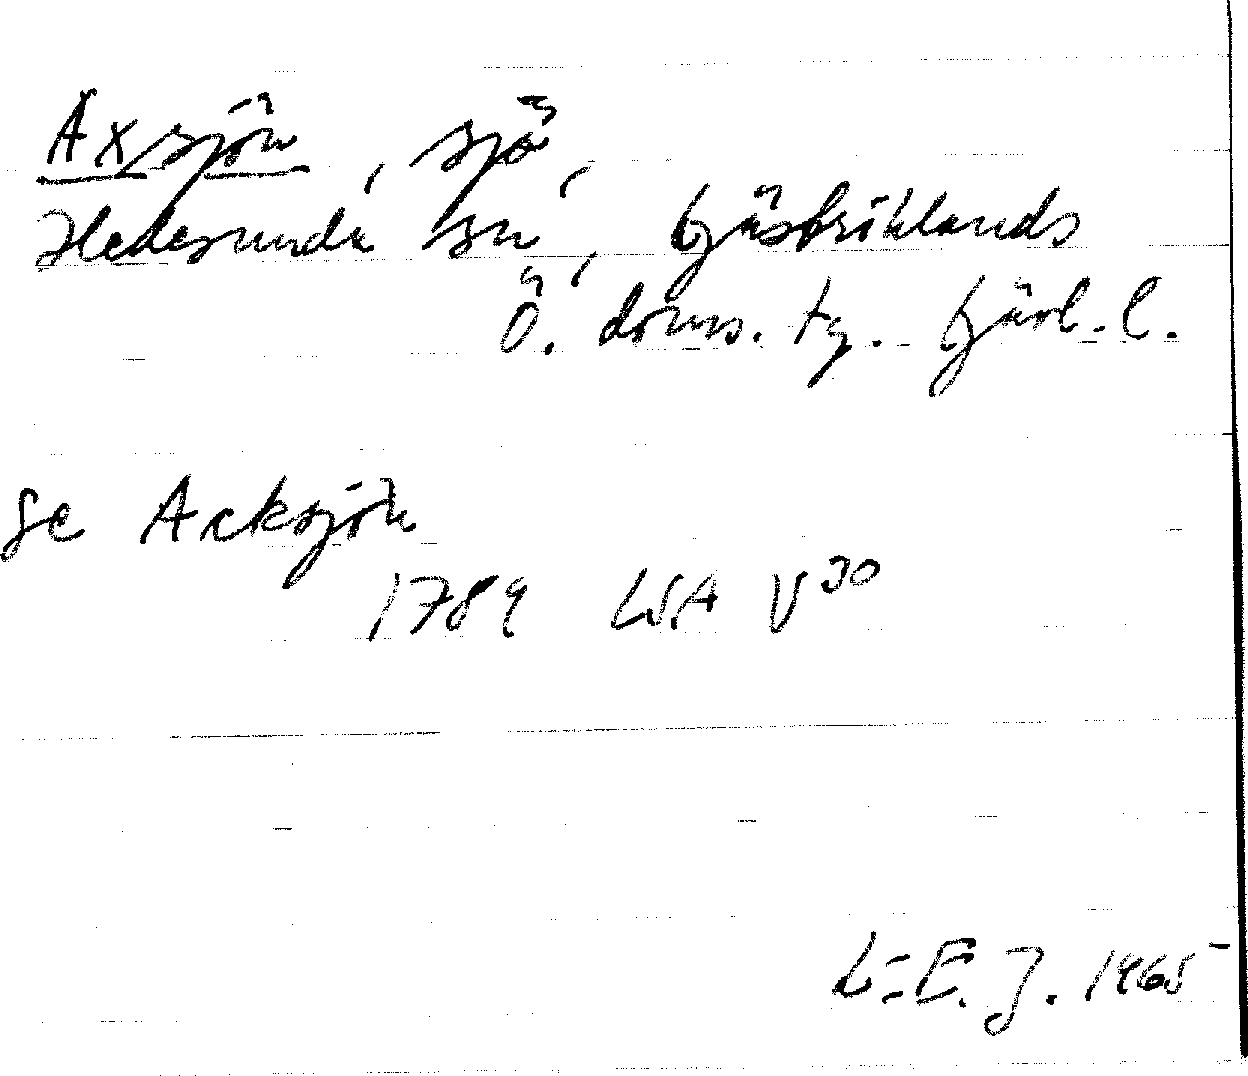 Axsjön, sjö,
Hedesunda sn, Gästriklands
Ö. doms. tg. Gävl. l.
Se Acksjön
1789 LSA V30
L-E. J. 1965